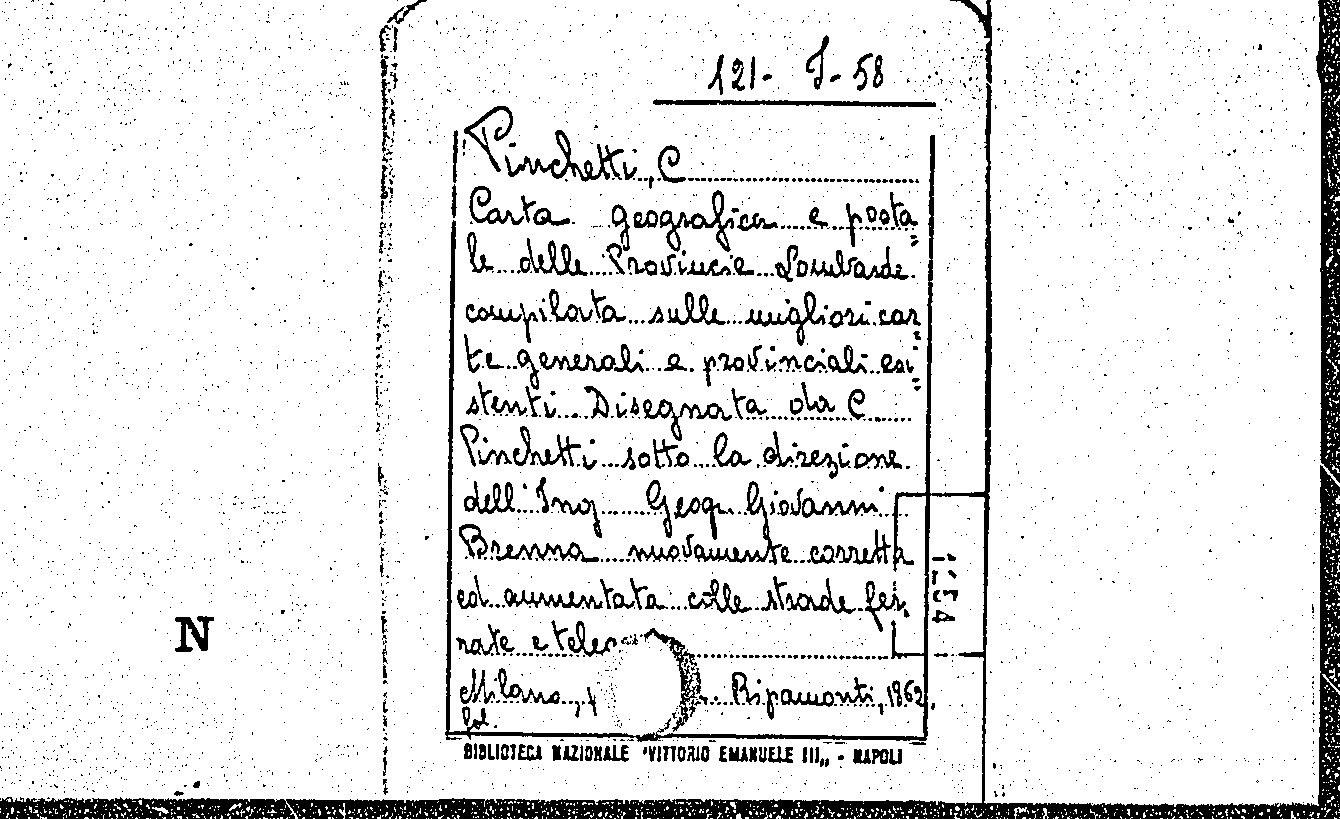 121- J-58
Pinchetti, C
Carta geografica e posta=
le delle Provincie Lombarde
compilata sulle migliori car=
te generali e provinciali esi=
stenti. Disegnata da C
Pinchetti sotto la direzione
dell'Ing Geogr. Giovanni
Brenna nuovamente corretta
ed aumentata colle strade fer-
rate e
Milano, Ripamonti, 1862.
fol.
BIBLIOTECA NAZIONALE "VITTORIO EMANUELE III„ - NAPOLI
1254
N